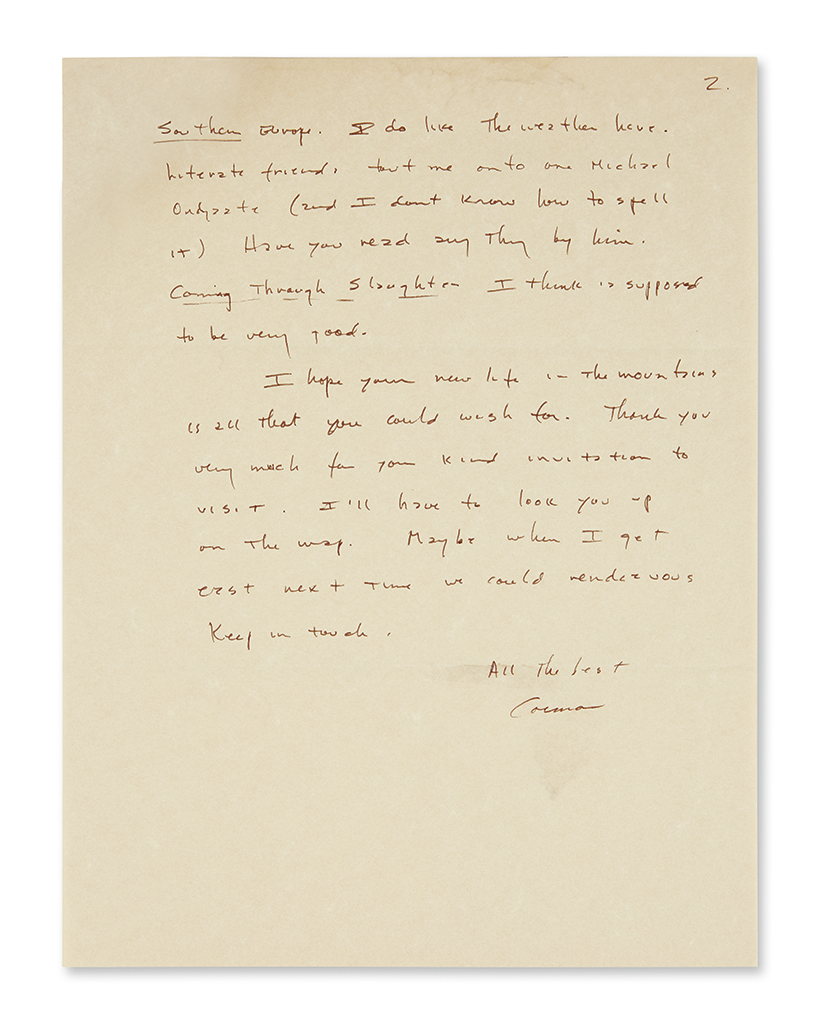 2.
Southern Europe. I do like the weather here.
Literate friends tout me onto one Michael
Ondjaate (and I dont know how to spell
it) Have you read any thing by him.
Coming Through Slaughter I think is supposed
to be very good.
I hope your new life in the mountains
is all that you could wish for. Thank you
very much for your kind invitation to
visit. I'll have to look you up
on the map. Maybe when I get
east next time we could rendezvous
Keep in touch.
All the best
Cormac